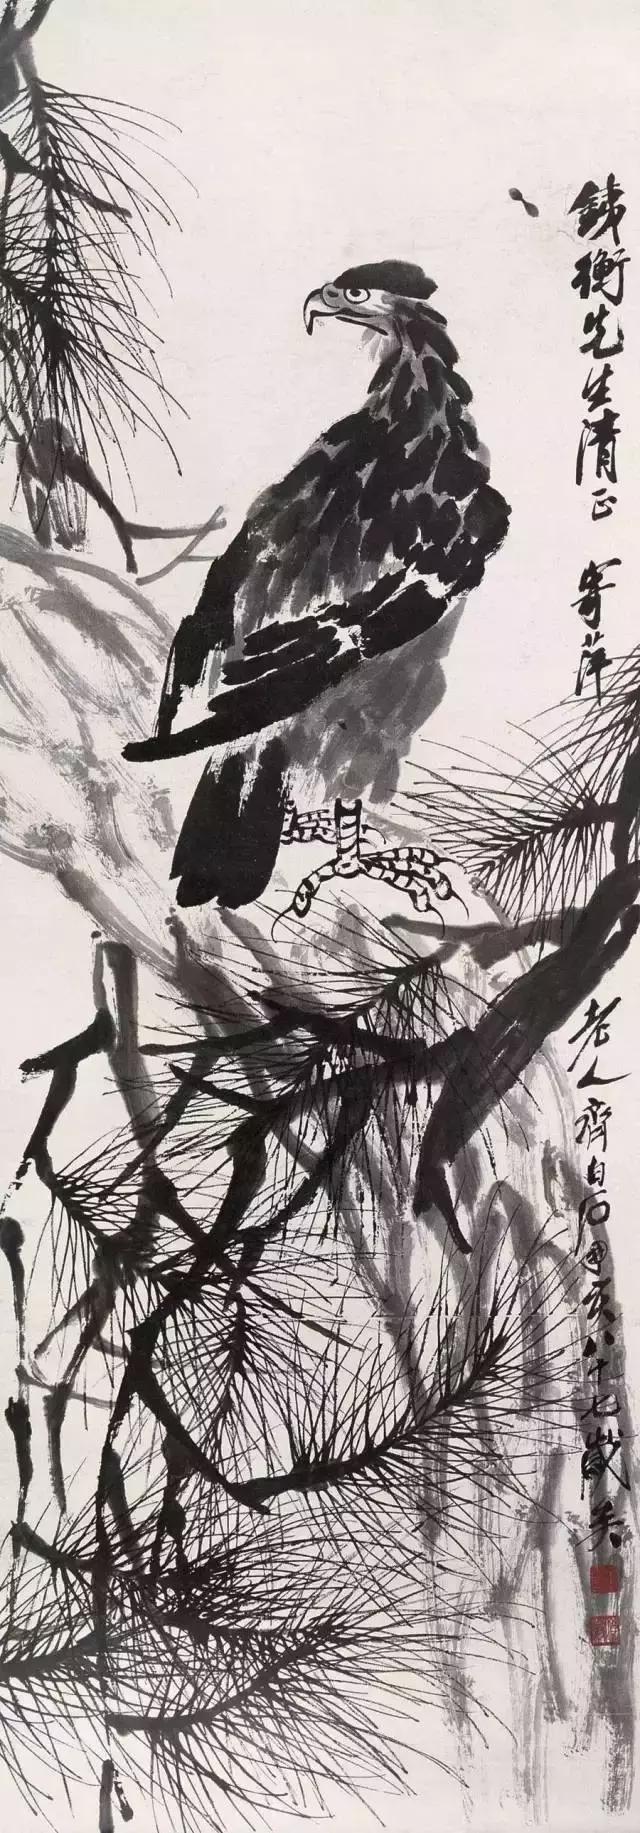 銕衡先生清正 寄萍老人齊白石亥八十七歲矣